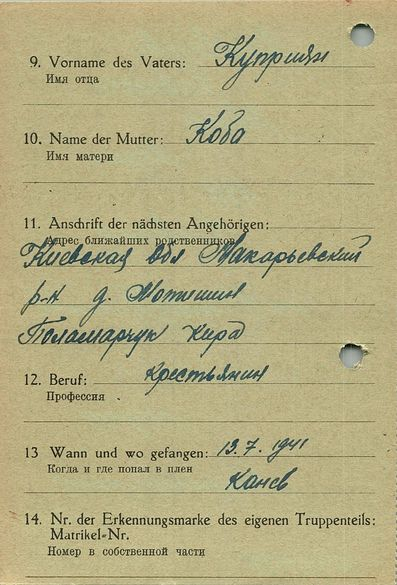 9. Vorname des Vaters: Куприян
Имя отца
10. Name der Mutter: Коба
Имя матери
11. Anschrift der nächsten Angehörigen:
Адрес ближайших родственников
Киевская обл Макарьевский
р-н д. Мотишин
Поламарчук Кира
12. Beruf: Крестьянин
Профессия
13 Wann und wo gefangen: 13.7.1941
Когда и где попал в плен
Канев
14. Nr. der Erkennungsmarke des eigenen Truppenteils:
Matrikel-Nr.
Номер в собственной части